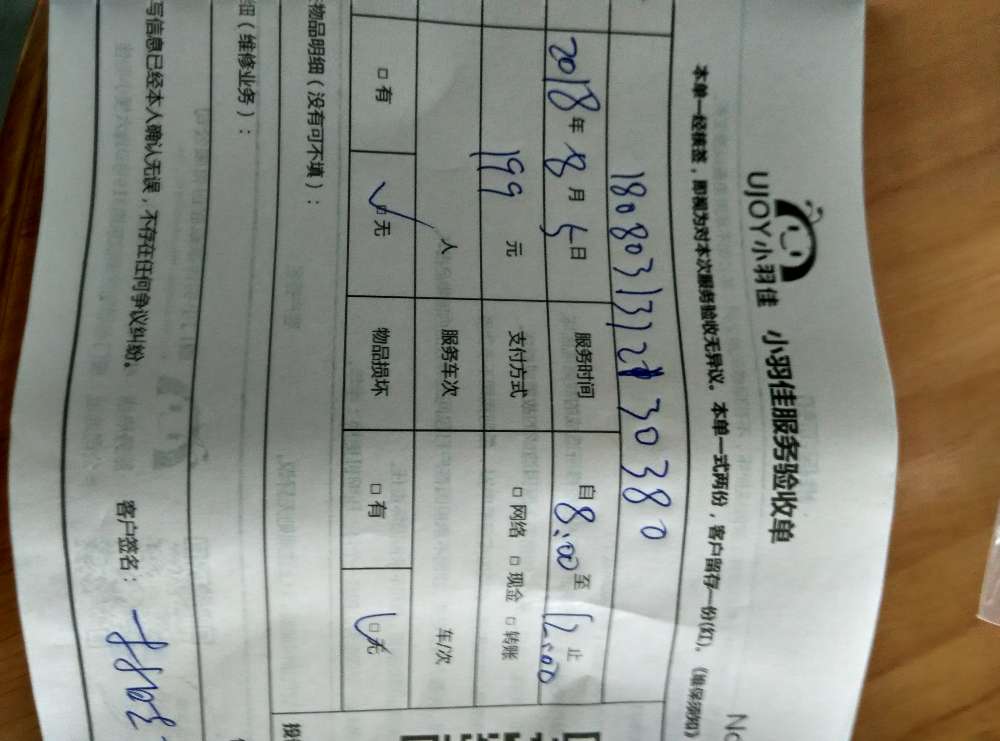 UJOY小羽佳 小羽佳服务验收单
No
本单一经核签，即视为对本次服务验收无异议。本单一式两份，客户留存一份(红)。(维保须知)
2018年8月5日 服务时间 自8:00至12:00止
199元 支付方式 □网络 □现金 □转账
人 服务车次 车/次
□有 ☑无 物品损坏 □有 ☑无
物品明细（没有可不填）：
细（维修业务）：
写信息已经本人确认无误，不存在任何争议纠纷。 客户签名：